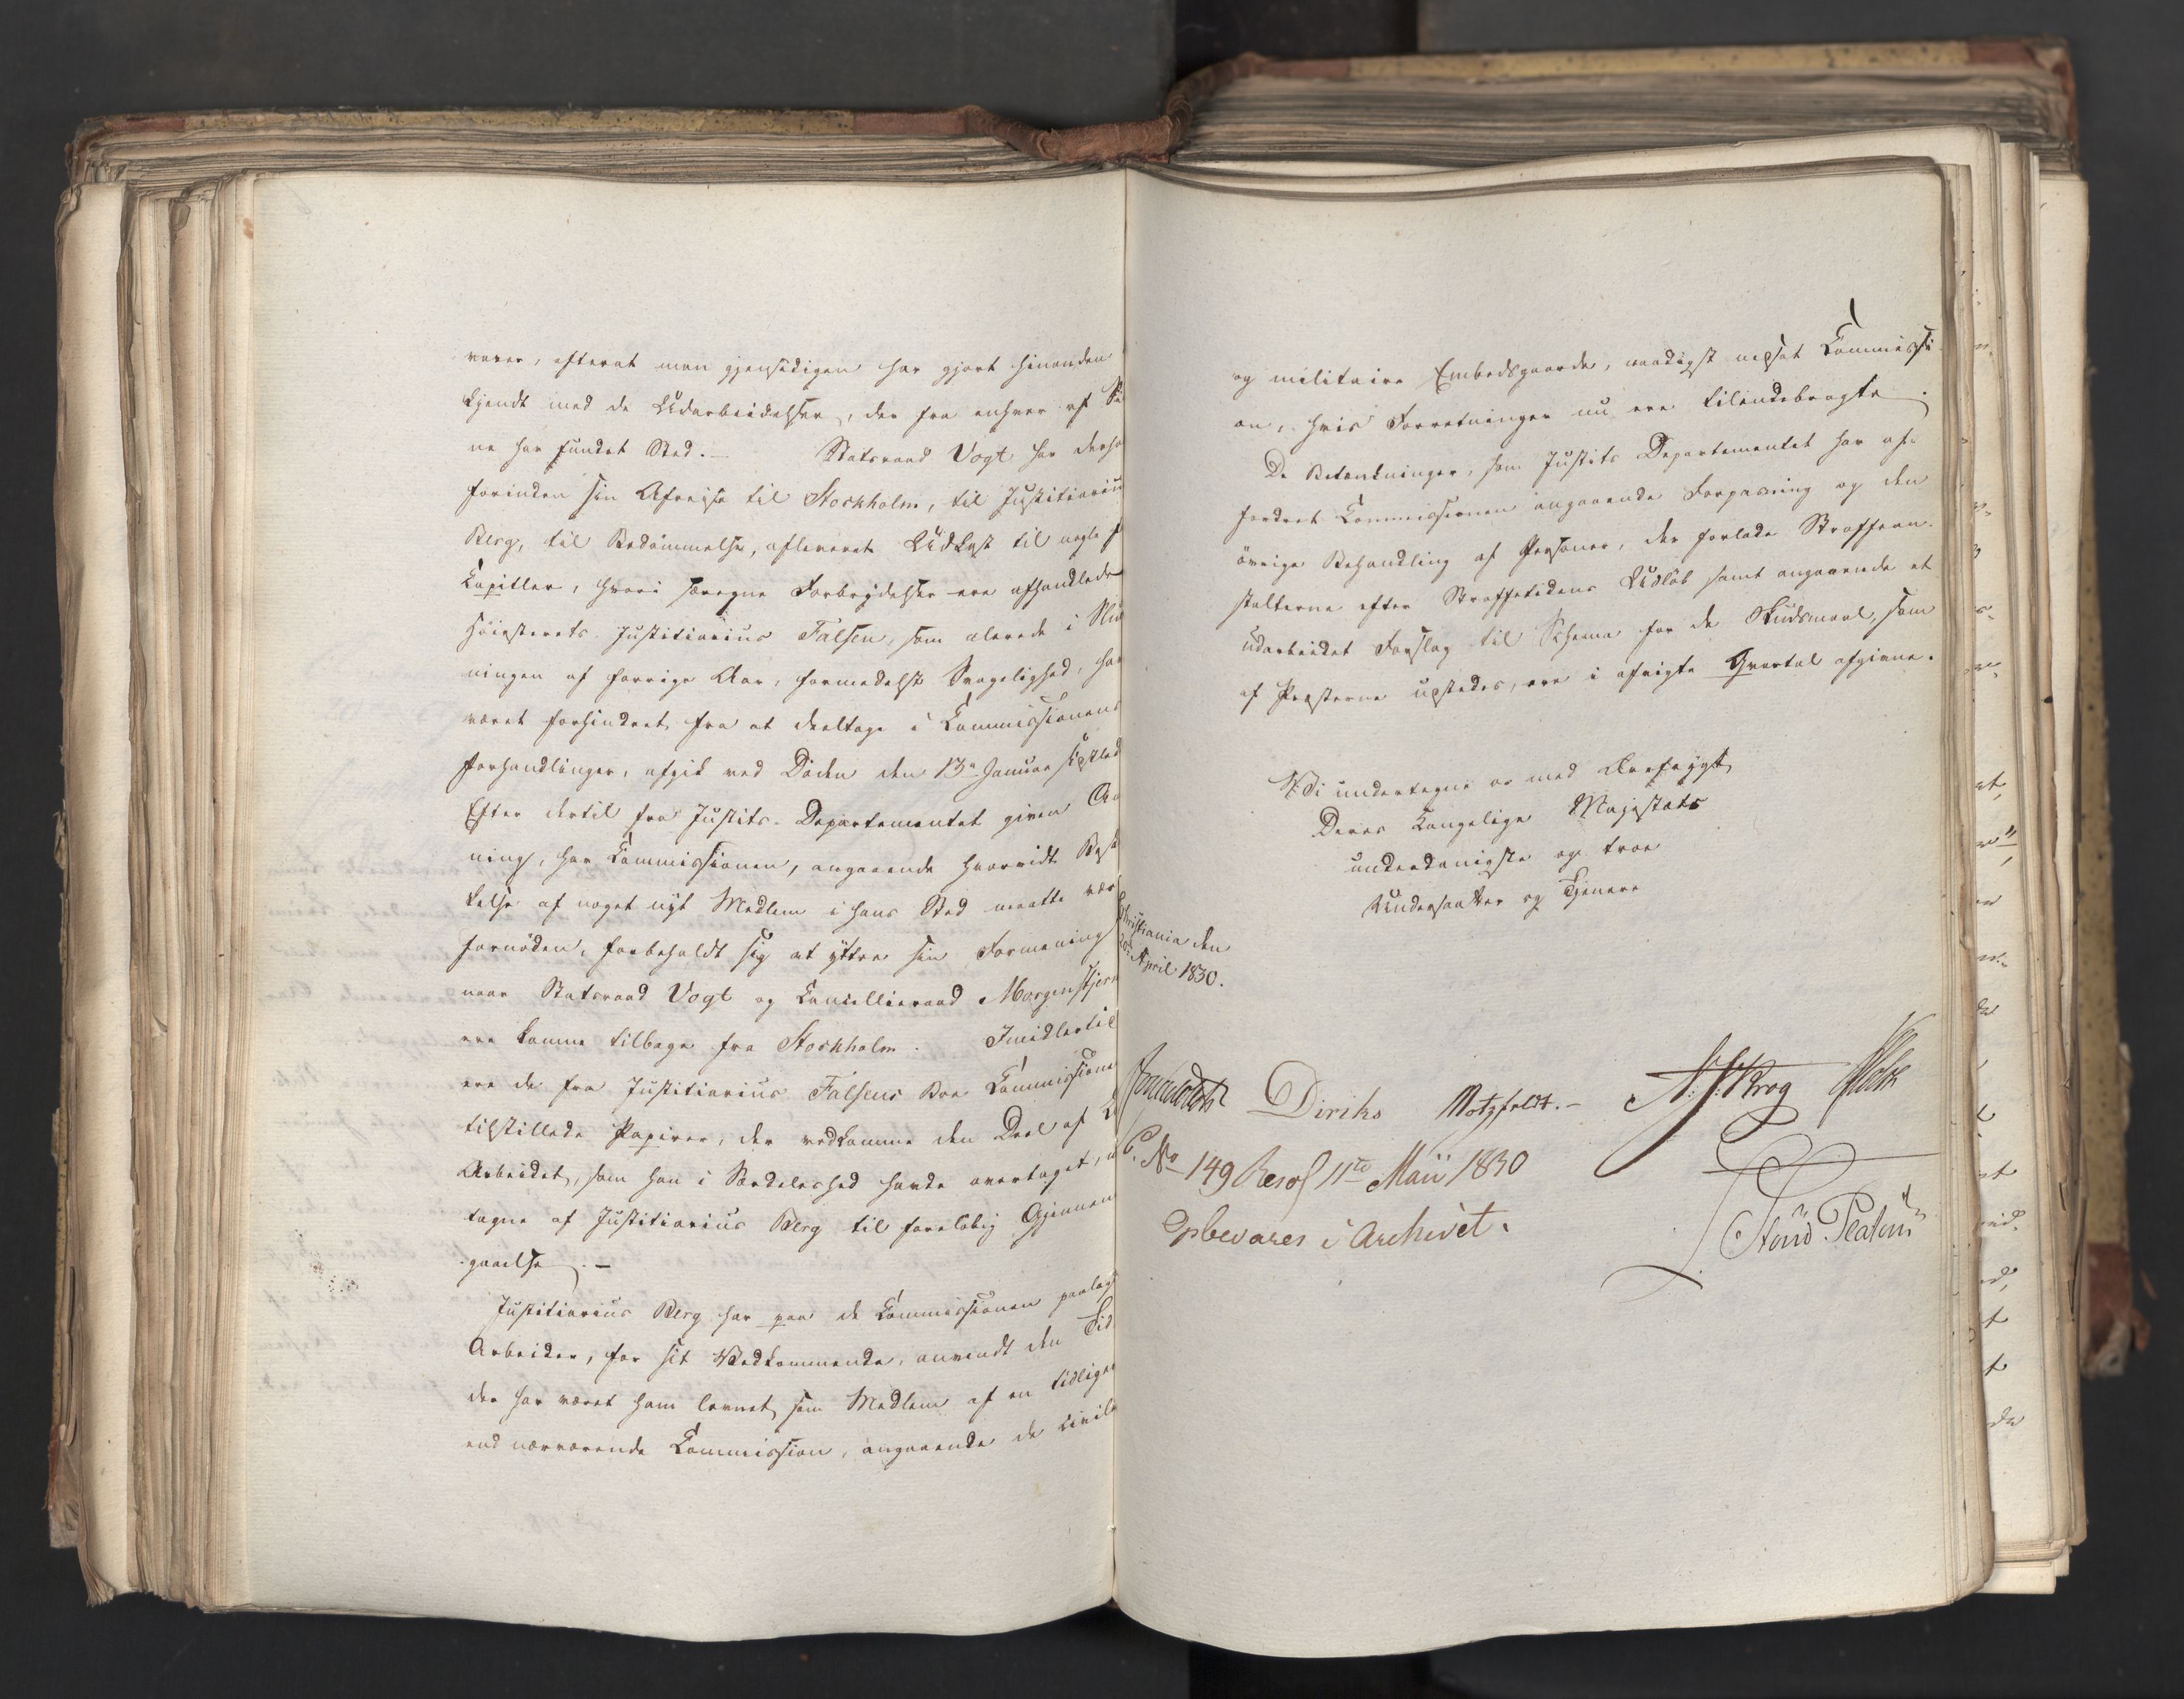 varer, efterat man gjensidigen har gjort hinanden
kjendt med de Udarbeidelser, der fra enhver af Si
ne har fundet Sted. – Statsraad Vogt har derho
forinden sin Afreise til Stockholm, til Justitiariu
Berg, til Bedömmelse, afleveret Udkast til nogle
Capitler, hvori særegne Forbrydelser ere afhandlede
Höiesterets Justitiarius Falsen, som alerede i Slu
ningen af forrige Aar, formedelst Svagelighed, har
været forhindret fra at deeltage i Commissionens
forhandlinger, afgik ved Döden den 13de Januar sidstled
Efter dertil fra Justits-Departementet given An
ning, har Commissionen, angaaende hvorvidt Besk
kelse af noget nyt Medlem i hans Sted maatte være
fornöden, forbeholdt sig at yttre sin Formening
naar Statsraad Vogt og Cancellieraad Morgenstjern
ere komne tilbage fra Stockholm. Imidlertid
ere de fra Justitiarius Falsens Boe Commissione
tilstillede Papirer, der vedkomme den Deel af
Arbeidet, som han i Særdeleshed havde overtaget,
tagne af Justitiarius Berg til foreløbig Gjennem
gaaelse. –
Justitiarius Berg har paa de Commissionen paalag
Arbeider, for sit Vedkommende, anvendt den Tid
der har været ham levnet som Medlem af en tidligere
end nærværende Commission, angaaende de civile
og militaire Embedsgaarde, naadigst nedsat Commissi
on, hvis Forretninger nu ere tilendebragte.
De Betænkninger, som Justits Departementet har af-
fordret Commissionen angaaende Forpasning og den
övrige Behandling af Personer, der forlade Straffean-
stalterne efter Straffetidens Udlöb samt angaaende et
udarbeidet Forslag til Schema for de Skudsmaal, som
af Præsterne udstedes, ere i afvigte Qvartal afgivne.
Vi undertegne os med Ærefrygt
Deres Kongelige Majestæts
underdanigste og troe
Undersaatter og Tjenere
Christiania den
20de April 1830.
Diriks Motzfeldt. – Krog Holst
P. No 149 Resol 11te Maii 1830
Opbevares i Archivet.